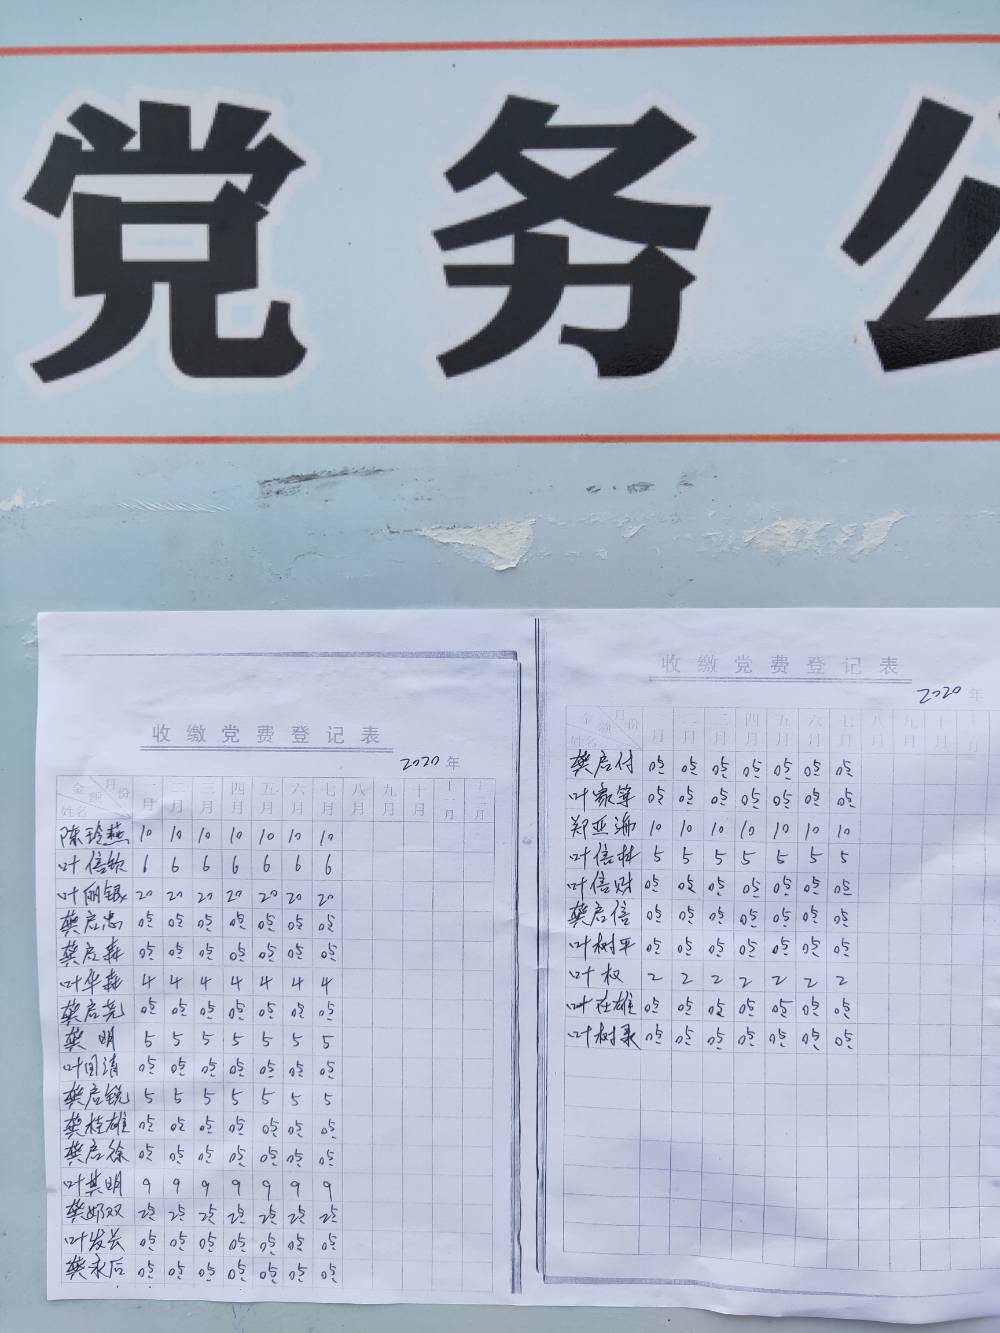 党务公
收缴党费登记表
2020年
金额 月份 姓名 一月 二月 三月 四月 五月 六月 七月 八月 九月 十月 十一月 十二月
陈玲燕 10 10 10 10 10 10 10
叶信钦 6 6 6 6 6 6 6
叶丽银 20 20 20 20 20 20 20
龚启忠 05 05 05 05 05 05 05
龚启森 05 05 05 05 05 05 05
叶华森 4 4 4 4 4 4 4
龚启尧 05 05 05 05 05 05 05
龚明 5 5 5 5 5 5 5
叶国清 05 05 05 05 05 05 05
龚启锐 5 5 5 5 5 5 5
龚桂雄 05 05 05 05 05 05 05
龚启徐 05 05 05 05 05 05 05
叶其明 9 9 9 9 9 9 9
龚 双 25 25 25 25 25 25 25
叶发长 05 05 05 05 05 05 05
龚永后 05 05 05 05 05 05 05
收缴党费登记表
2020年
金额 月份 姓名 一月 二月 三月 四月 五月 六月 七月 八月 九月 十月 月
龚启付 05 05 05 05 05 05 05
叶家 05 05 05 05 05 05 05
郑亚 10 10 10 10 10 10 10
叶信林 5 5 5 5 5 5 5
叶信财 05 05 05 05 05 05 05
龚启信 05 05 05 05 05 05 05
叶树平 05 05 05 05 05 05 05
叶权 2 2 2 2 2 2 2
叶在雄 05 05 05 05 05 05 05
叶树录 05 05 05 05 05 05 05